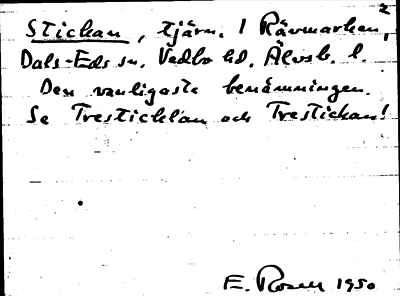 2
Stickan, tjärn. I Rävmarken,
Dals-Eds sn. Vedbo hd. Älvsb. l.
Den vanligaste benämningen.
Se Tresticklan och Trestickan!
E. Rosell 1950